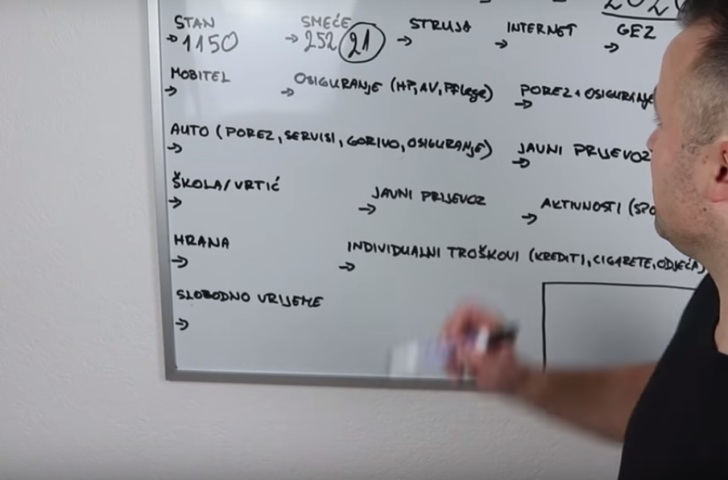 STAN SMEĆE STRUJA INTERNET GEZ
→ 1150 → 252 21 → → →
MOBITEL OSIGURANJE (HP, AV, Pflege) POREZ + OSIGURANJE
→ → →
AUTO (POREZ, SERVISI, GORIVO, OSIGURANJE) JAVNI PRIJEVOZ
→ →
ŠKOLA/VRTIĆ JAVNI PRIJEVOZ AKTIVNOSTI (SPO
→ → →
HRANA INDIVIDUALNI TROŠKOVI (KREDITI, CIGARETE, ODJEĆA)
→ →
SLOBODNO VRIJEME
→